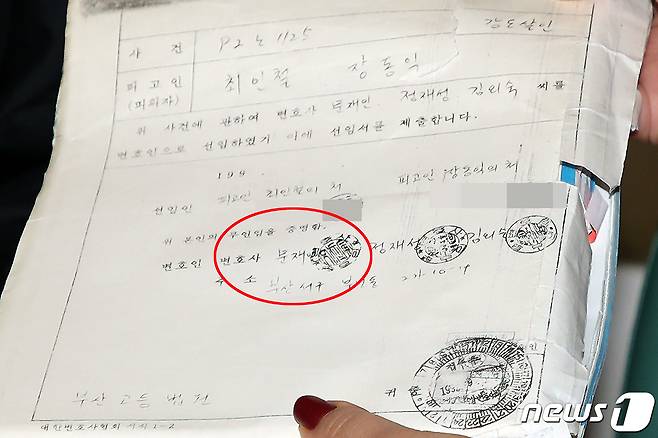 강도살인
사 건 92노1125
피고인 최인철 장동익
(피의자)
위 사건에 관하여 변호사 문재인, 정재성 김외숙 씨를
변호인으로 선임하였기 이에 선임서를 제출합니다.
199
선임인 피고인 최인철의 처 피고인 장동익의 처
위 본인의 무인임을 증명함.
변호인 변호사 문재 정재성 김외숙
주 소 부산 서구
부산고등법원 귀중
대한변호사협회 서식 1-2
news1